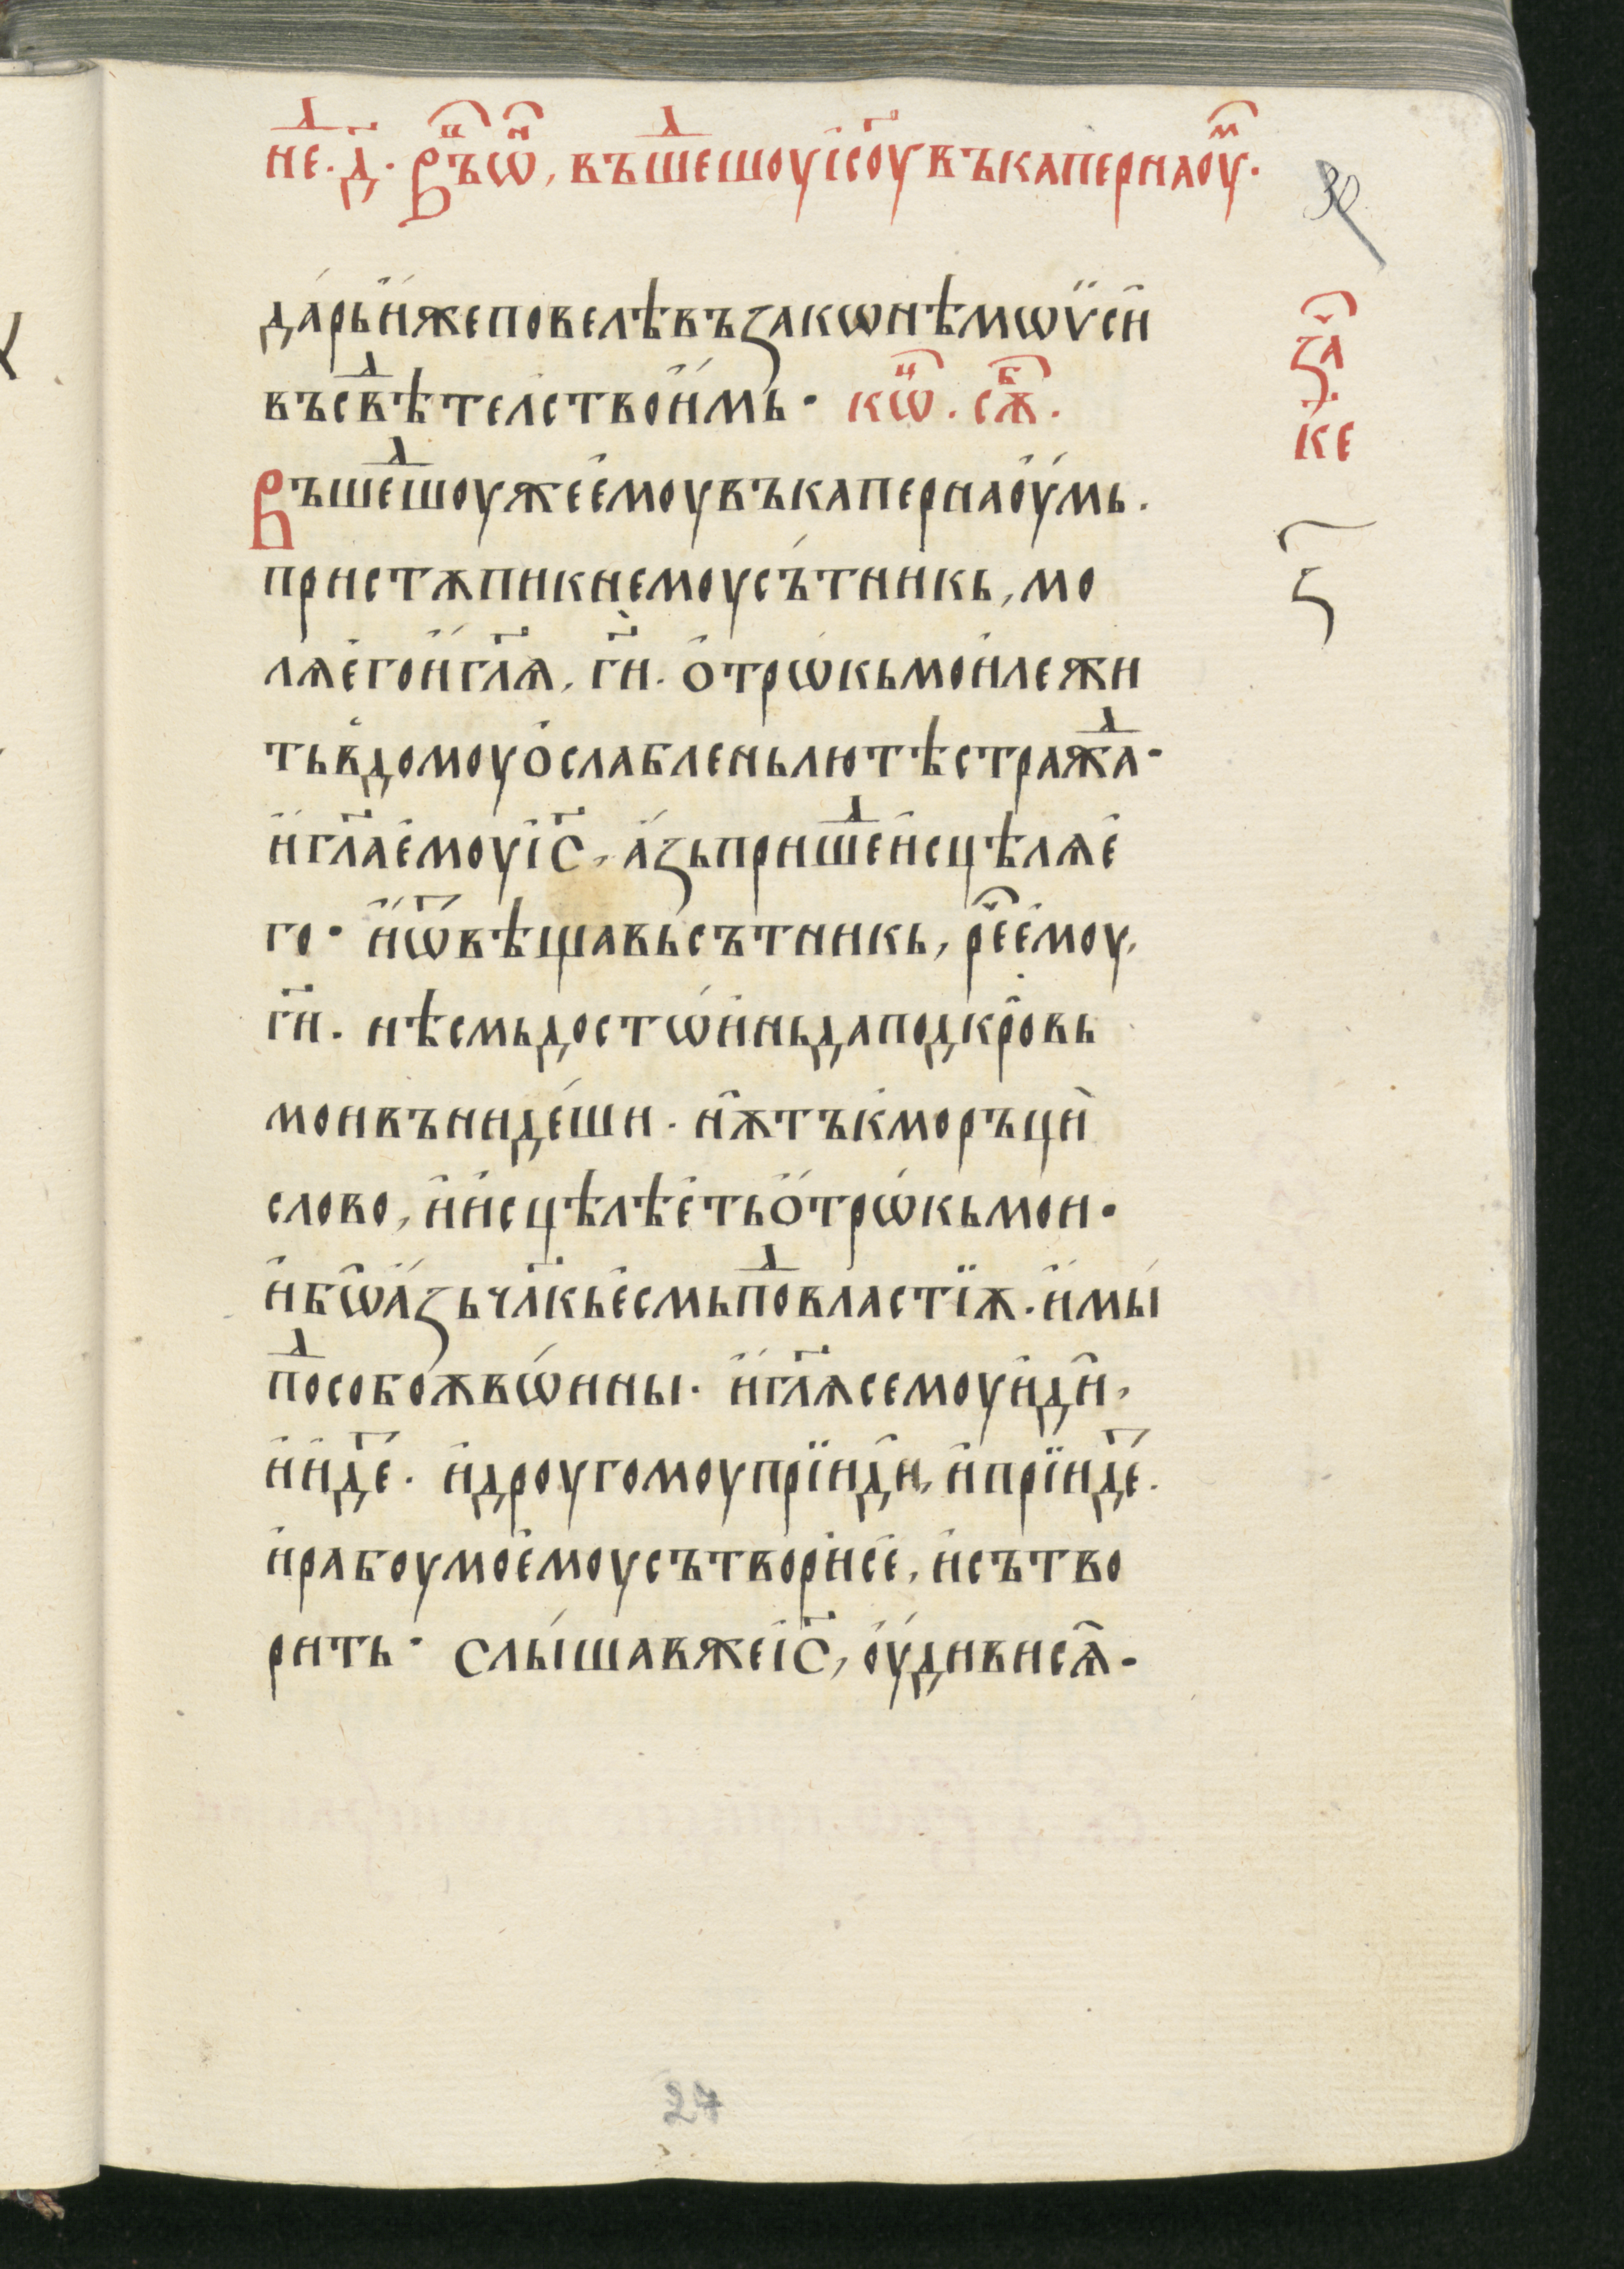 не҃д. д҃. Връⷨ҇ѡⷩ҇, въшеⷣшоу і҆с҃оу въ капернаоуⷨ҇.
30
да́рь и҆́же повелѣ въ законѣ мѡѷсі́и
въ свѣⷣтелство и҆́мь. кѡⷰ҇. сѫⷠ҇.
Въшеⷣшоу же е҆моу въ капернаоу́мь.
пристѫпи к немоу съ́тникь, мо
лѧ е҆го и҆ гл҃ѧ, гн҃и. ѻ҆трѡ́кь мои лежи
ть в̾ домоу ѻ҆слаблень лютѣ стражⷣа.
и҆ гл҃а е҆моу і҆с҃, а҆́зь пришеⷣ и҆сцѣлѧ е҆
го. и҆ ѿвѣщавь сътникь, рѐⷱ҇ е҆моу,
гн҃и. нѣсмь достѡ́инь да под кро́вь
мои въниде́ши. нѫ тъкмо рьци̑
слово, и҆ и҆сцѣлѣе҆ть ѻ҆трѡ́кь мои.
и҆бѡ а҆́зь чл҃кь е҆смь поⷣ властїѫ. и҆мы́
поⷣ собоѫ вѡ́ины. и҆ гл҃ѧ семоу и҆ди̑,
и҆ и҆деⷮ. и҆ дроугомоу прїиди̑, и҆ прїидеⷮ.
и҆ рабоу моемоу сътвори се, и҆ сътво
рить. Слы́шав же і҆с҃, оу҆́диви сѧ.
заⷱ҇.
ке
ѕ
27